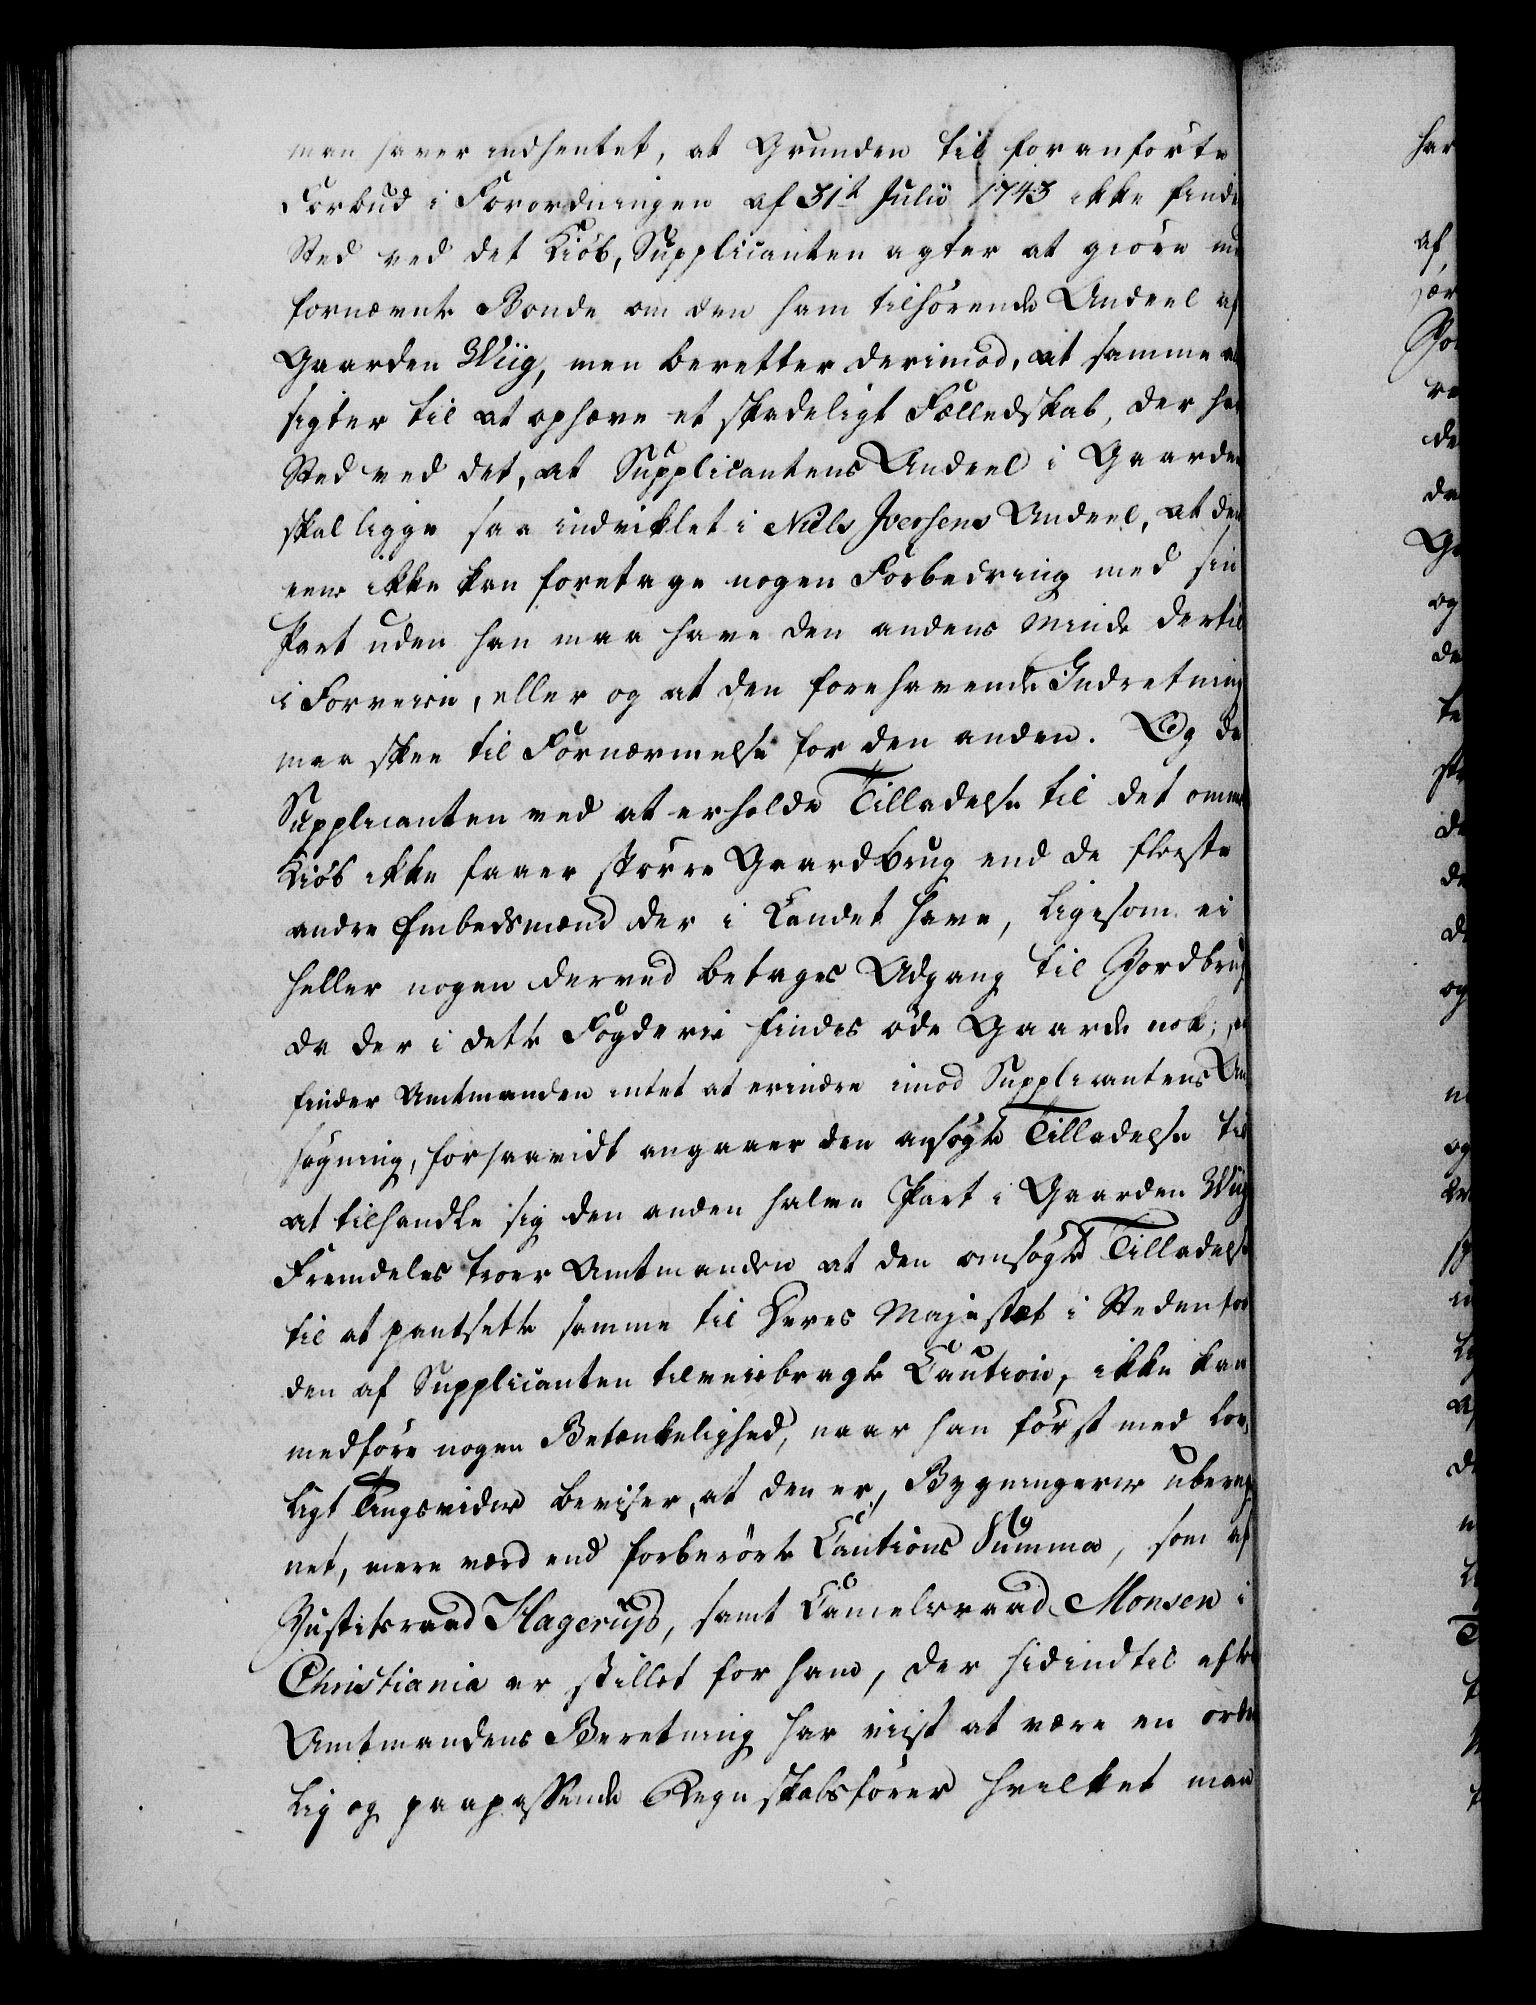 man haver indhentet, at Grunden til foranførte
Forbud i Forordningen af 31te Julii 1743 ikke finde
Sted ved det Kiøb, Supplicanten agter at giøre med
fornævnte Bonde om den ham tilhørende Andeel af
Gaarden Wiig, men beretter derimod, at samme
sigter til at ophæve et skadeligt Fælledskab, der har
Sted ved det, at Supplicantens Andeel i Gaarden
skal ligge saa indviklet i Niels Iversens Andeel, at den
eene ikke kan foretage nogen Forbedring med sin
Part uden han maa have den andens Minde dertil
i Forveien, eller og at den forehavende Indretning
maa skee til Fornærmelse for den anden. Og da
Supplicanten ved at erholde Tilladelse til det
Kiøb ikke faaer større Gaardbrug end de fleeste
andre Embedsmænd der i Landet have, ligesom ei
heller nogen derved betages Adgang til Jordbrug
da der i dette Fogderie findes øde Gaarde nok;
finder Amtmanden intet at erindre imod Supplicantens An
søgning, forsaavidt angaaer den ansøgte Tilladelse til
at tilhandle sig den anden halve Part i Gaarden Wiig
Fremdeles troer Amtmanden at den ansøgte Tilladelse
til at pantsætte samme til Deres Majestæt i Steden for
den af Supplicanten tilveiebragte Caution, ikke kan
medføre nogen Betænkelighed, naar han først med lov
ligt Tingsvidne beviser, at den er, Bygningerne ubereg
net, mere værd end forberørte Cautions Summa, som af
Justitsraad Hagerups, samt Cancelieraad Monsen i
Christiania er stillet for ham, der hidindtil efter
Amtmandens Beretning har viist at være en orden
lig og paapassende Regnskabsfører hvilket man